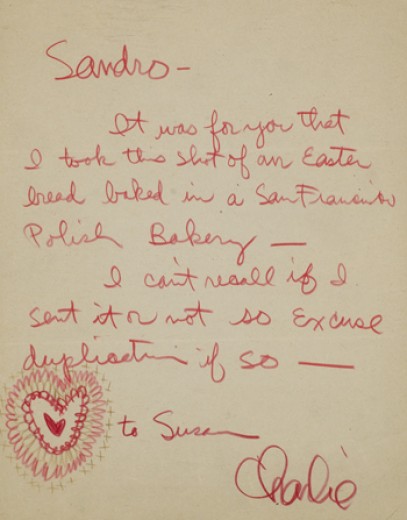 Sandro -
It was for you that
I took this shot of an Easter
bread baked in a San Francisco
Polish Bakery —
I can't recall if I
sent it or not so Excuse
duplication if so —
to Susan
Charlie